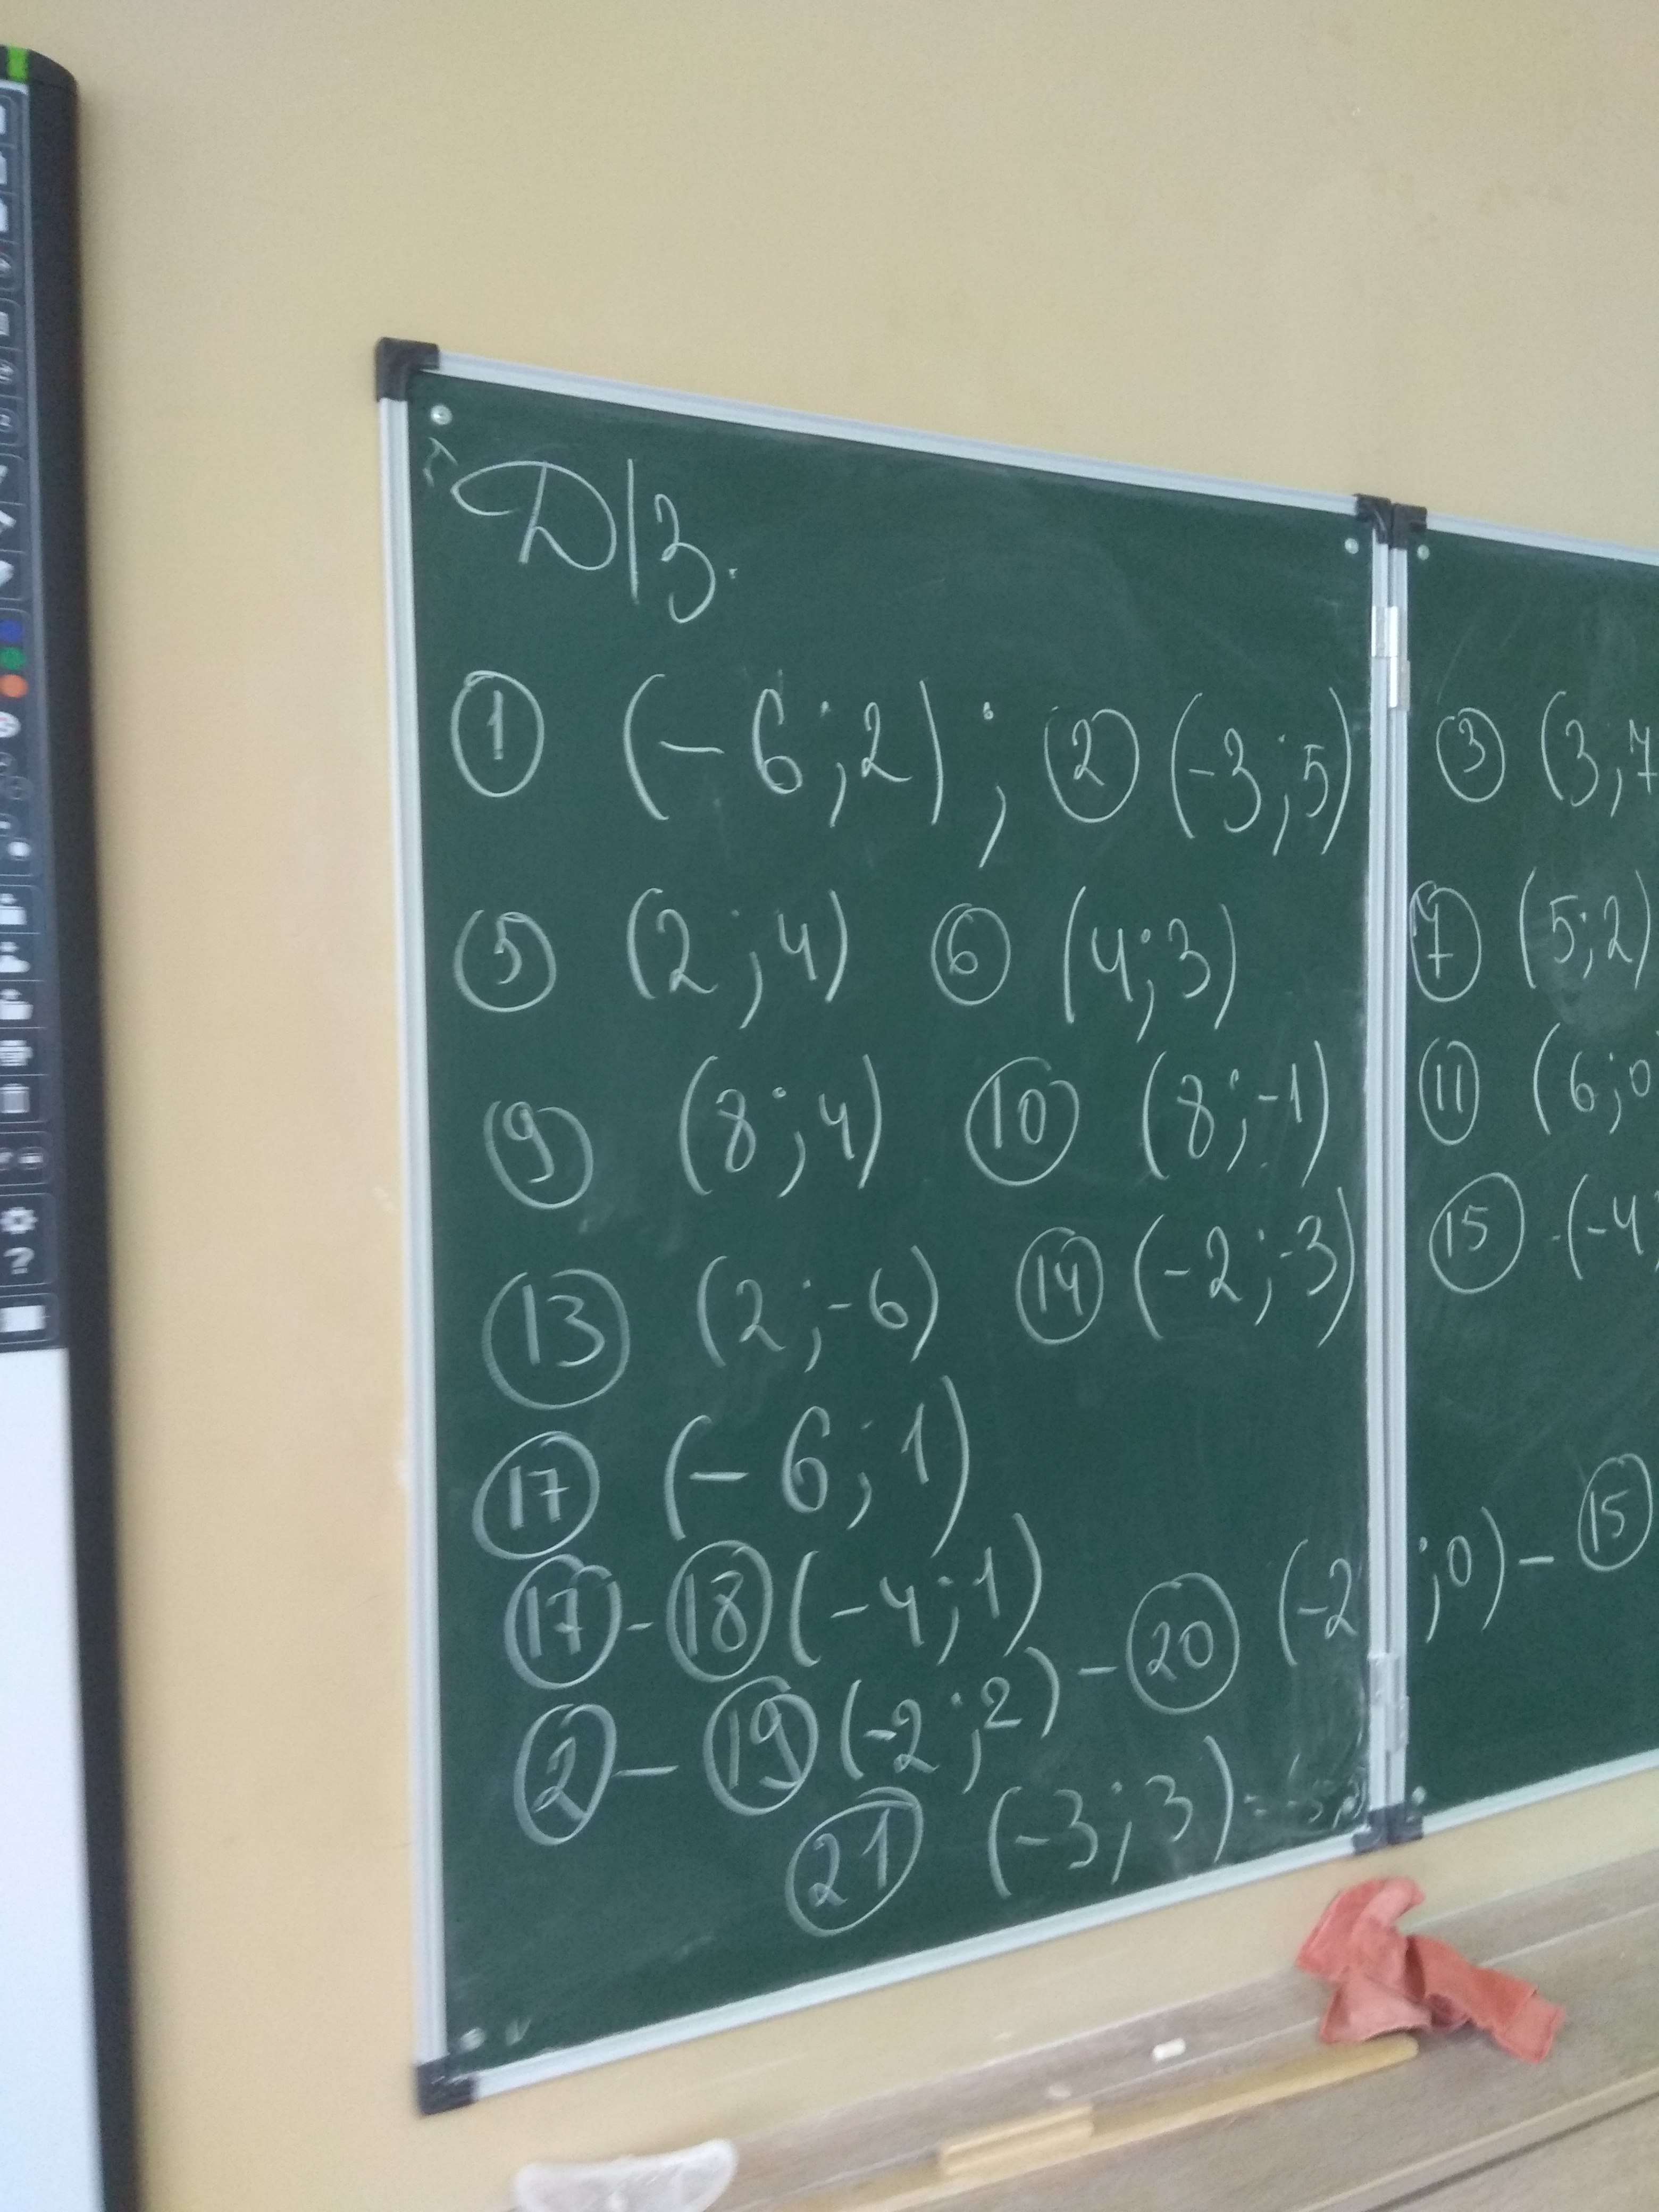 Д/З.
① (-6;2); ② (-3;5) ③ (3;7
⑤ (2;4) ⑥ (4;3) ⑦ (5;2)
⑨ (8;4) ⑩ (8;-1) ⑪ (6;0
⑬ (2;-6) ⑭ (-2;-3) ⑮ (-4;
⑰ (-6;1)
⑰-⑱(-4;1)
②-⑲(-2;2)-⑳ (-2;0)-⑮
㉑ (-3;3)
?